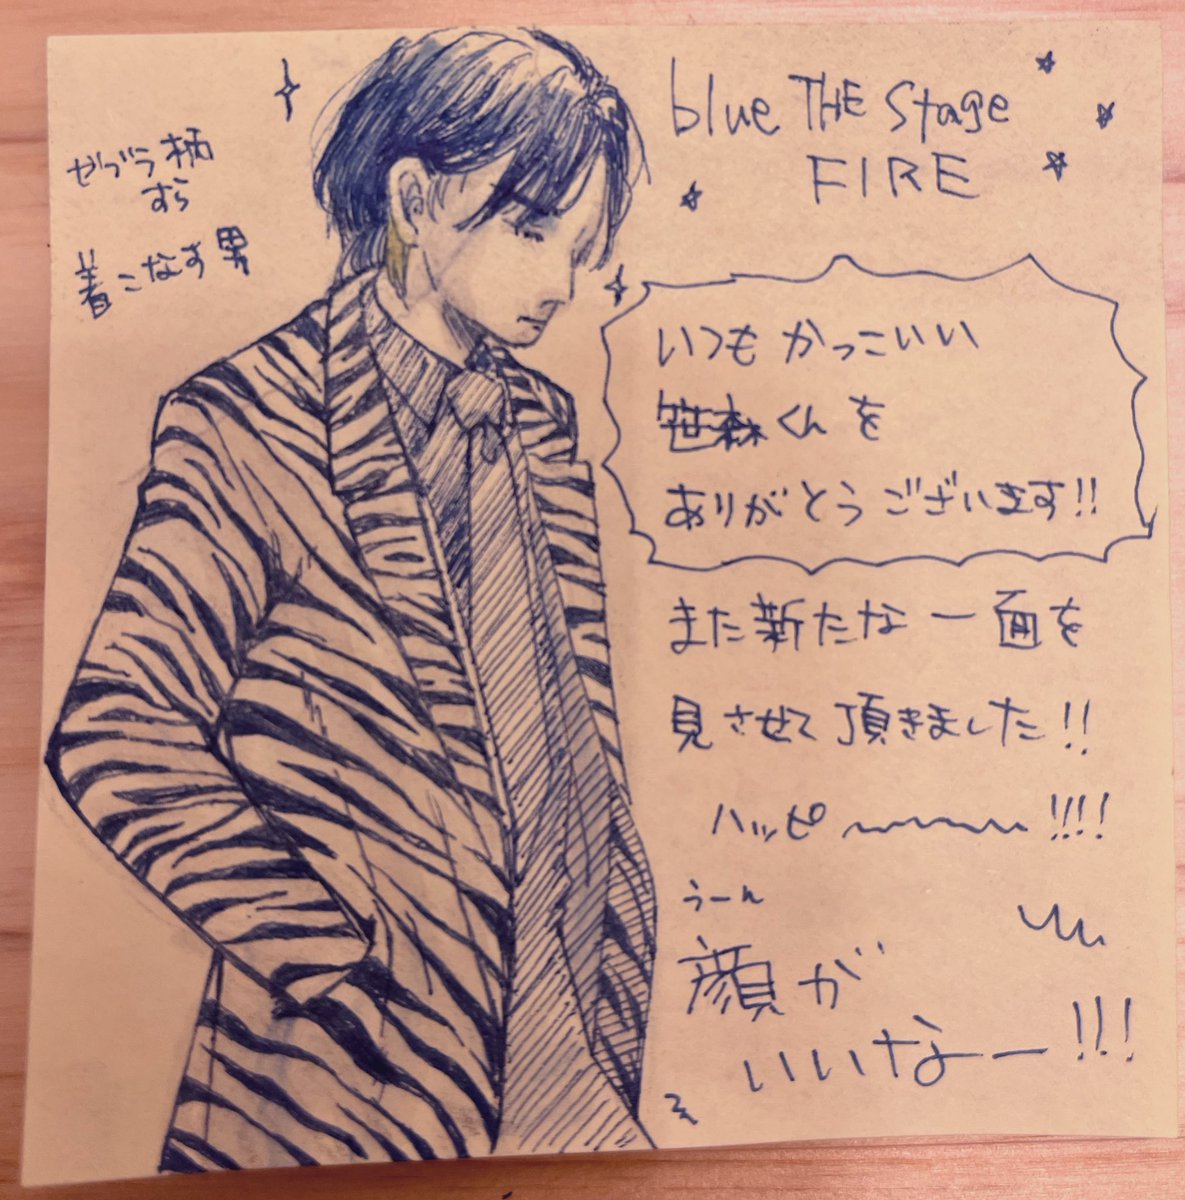 blue THE Stage
FIRE
ゼブラ柄
すら
着こなす男
いつもかっこいい
笹森くんを
ありがとうございます!!
また新たな一面を
見させて頂きました!!
ハッピ〜〜〜!!!!
うーん
顔が
いいなー!!!